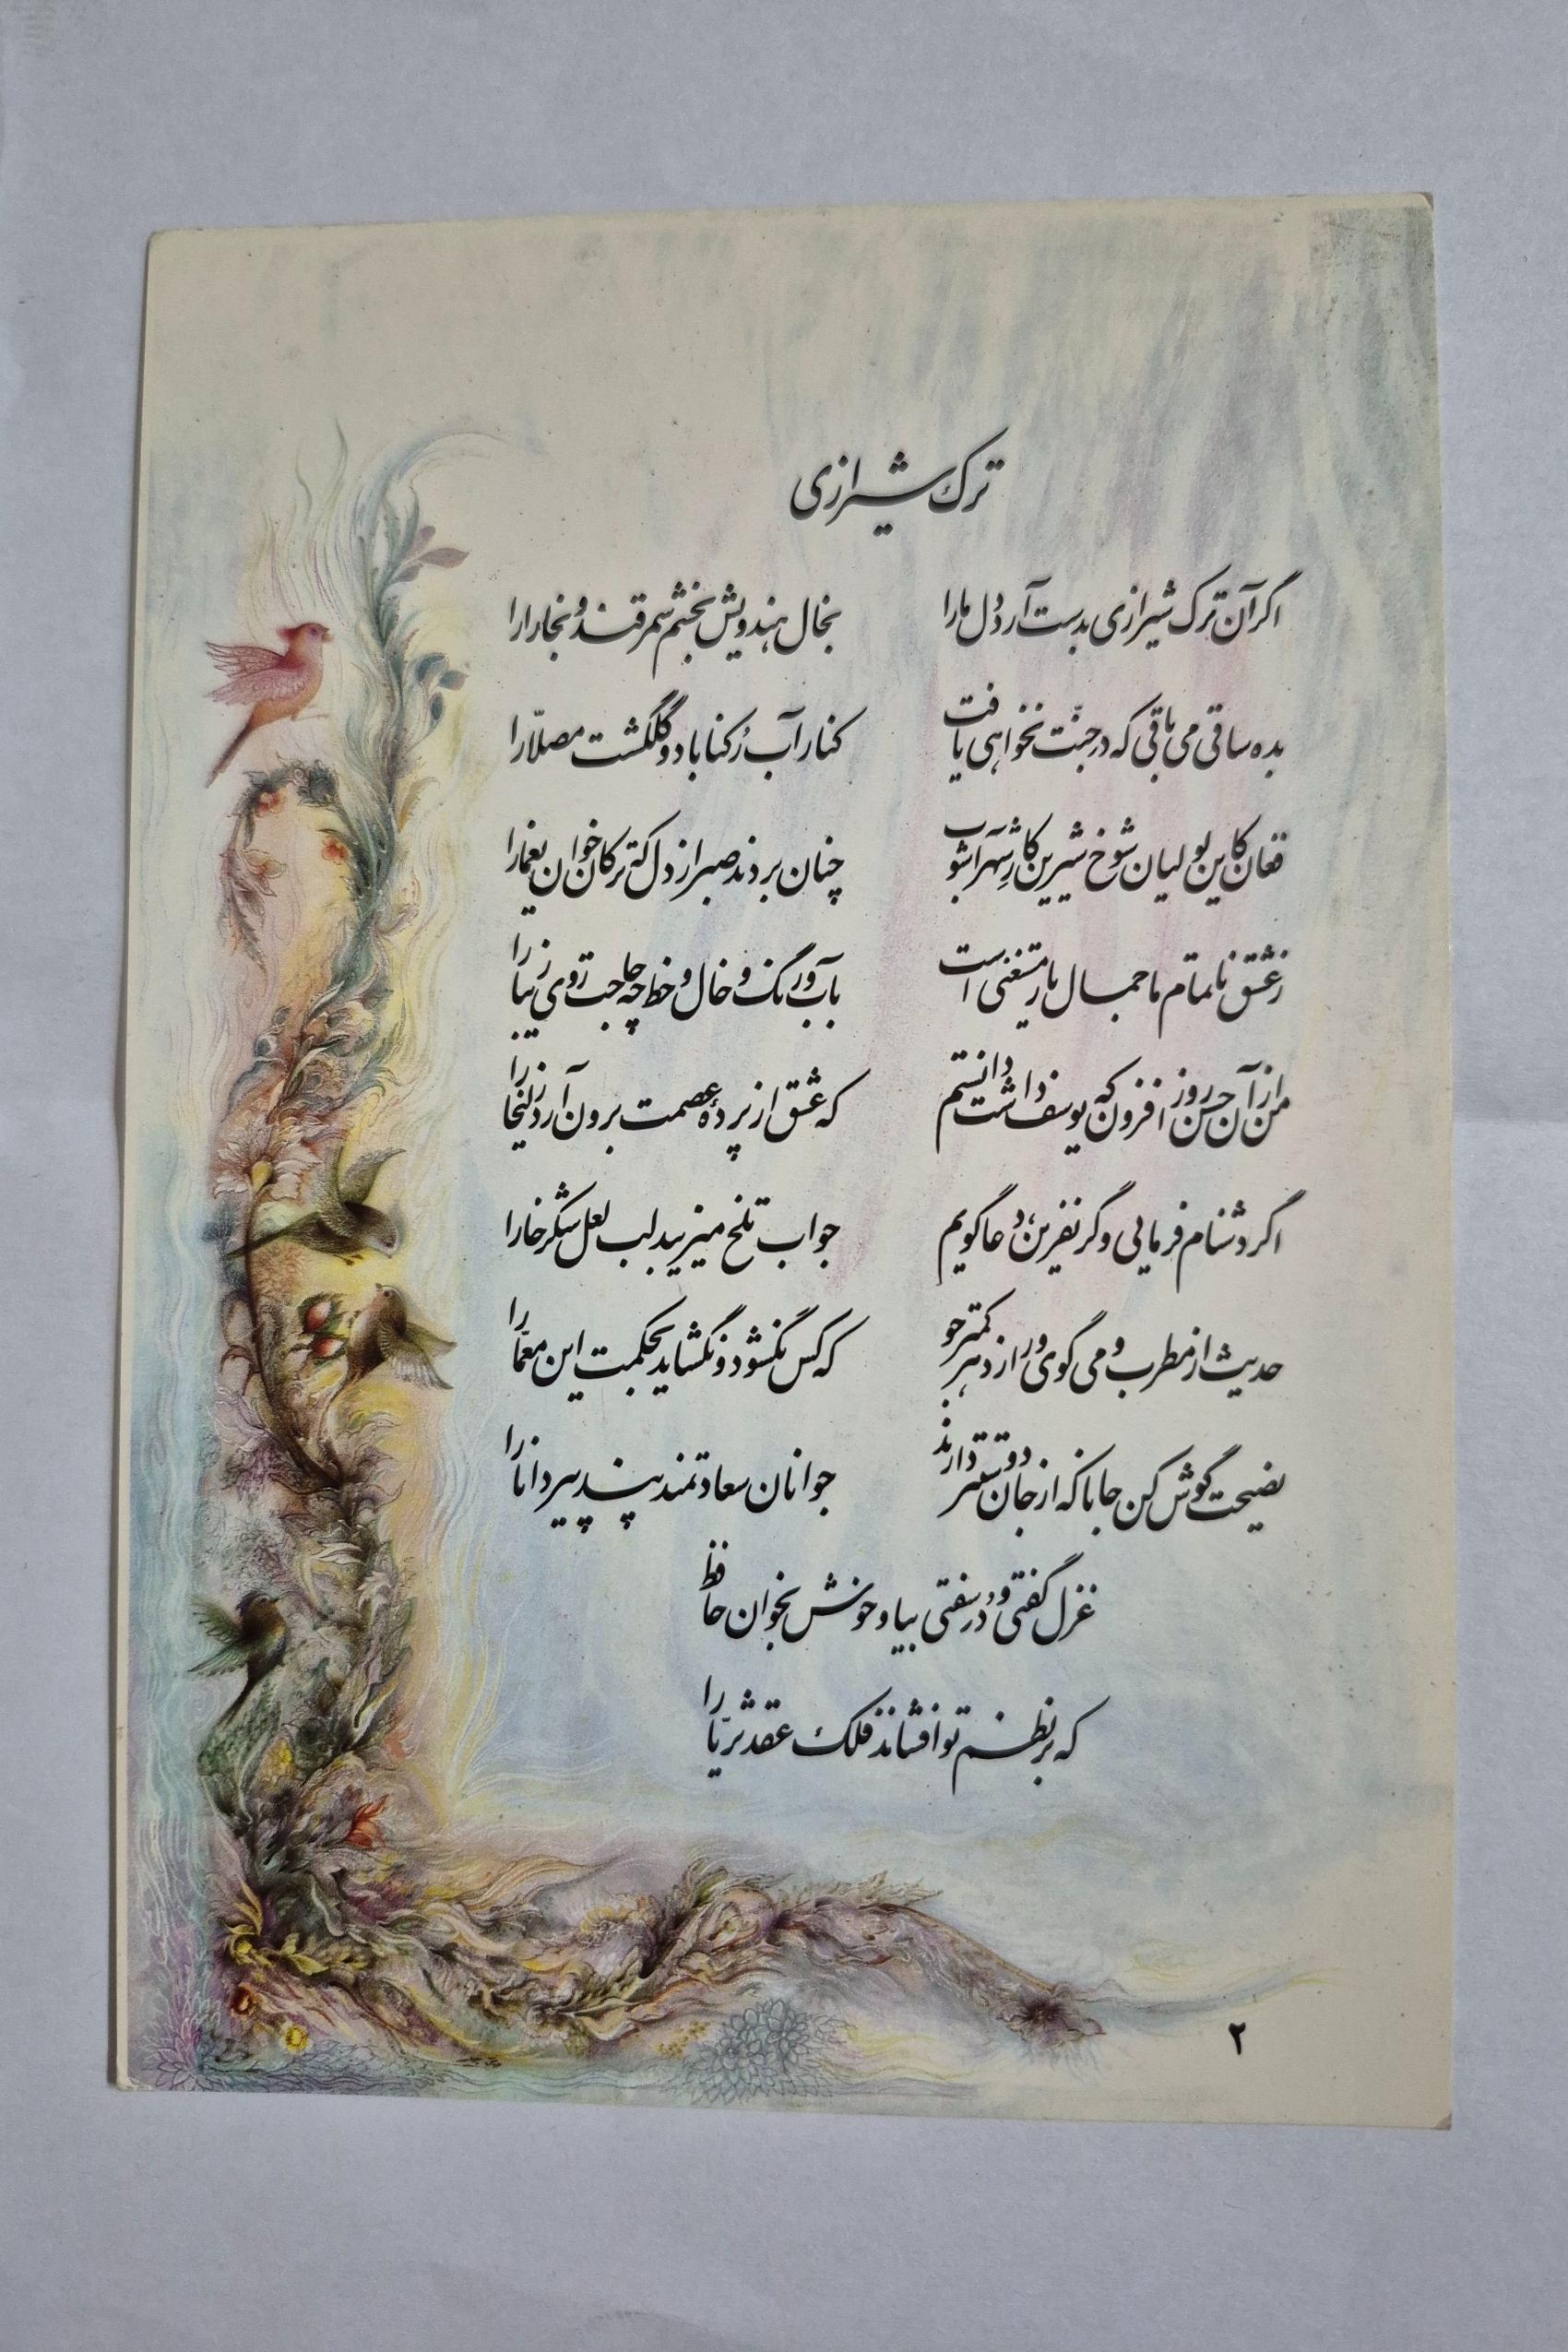 ترک شیرازی
اگر آن ترک شیرازی بدست آرد دل ما را بخال هندویش بخشم سمرقند و بخارا را
بده ساقی می باقی که در جنّت نخواهی یافت کنار آب رُکناباد و گلگشت مصلّا را
فغان کاین لولیان شوخ شیرین کار شهرآشوب چنان بردند صبر از دل که ترکان خوان یغما را
ز عشق ناتمام ما جمال یار مستغنی است بآب و رنگ و خال و خط چه حاجت روی زیبا را
من از آن حسن روز افزون که یوسف داشت دانستم که عشق از پردهٔ عصمت برون آرد زلیخا را
اگر دشنام فرمایی وگر نفرین دعا گویم جواب تلخ میزیبد لب لعل شکرخا را
حدیث از مطرب و می گوی و راز دهر کمتر جو که کس نگشود و نگشاید بحکمت این معمّا را
نصیحت گوش کن جانا که از جان دوستتر دارند جوانان سعادتمند پند پیر دانا را
غزل گفتی و دُر سفتی بیا و خوش بخوان حافظ
که بر نظم تو افشاند فلک عقد ثریّا را
۲